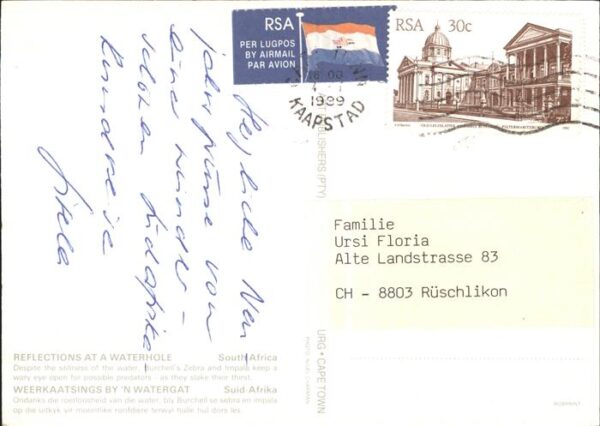 RSA
PER LUGPOS
BY AIRMAIL
PAR AVION
RSA 30c
1989
KAAPSTAD
Herzliche Neu-
jahrsgrüsse von
einer wunder-
schönen Südafrika
Rundreise
Gisela
Familie
Ursi Floria
Alte Landstrasse 83
CH - 8803 Rüschlikon
REFLECTIONS AT A WATERHOLE South Africa
Despite the stillness of the water, Burchell's Zebra and Impala keep a
wary eye open for possible predators - as they slake their thirst.
WEERKAATSINGS BY 'N WATERGAT Suid-Afrika
Ondanks die roerloosheid van die water, bly Burchell se sebra en impala
op die uitkyk vir moontlike roofdiere terwyl hulle hul dors les.
PUBLISHERS (PTY)
URG • CAPE TOWN